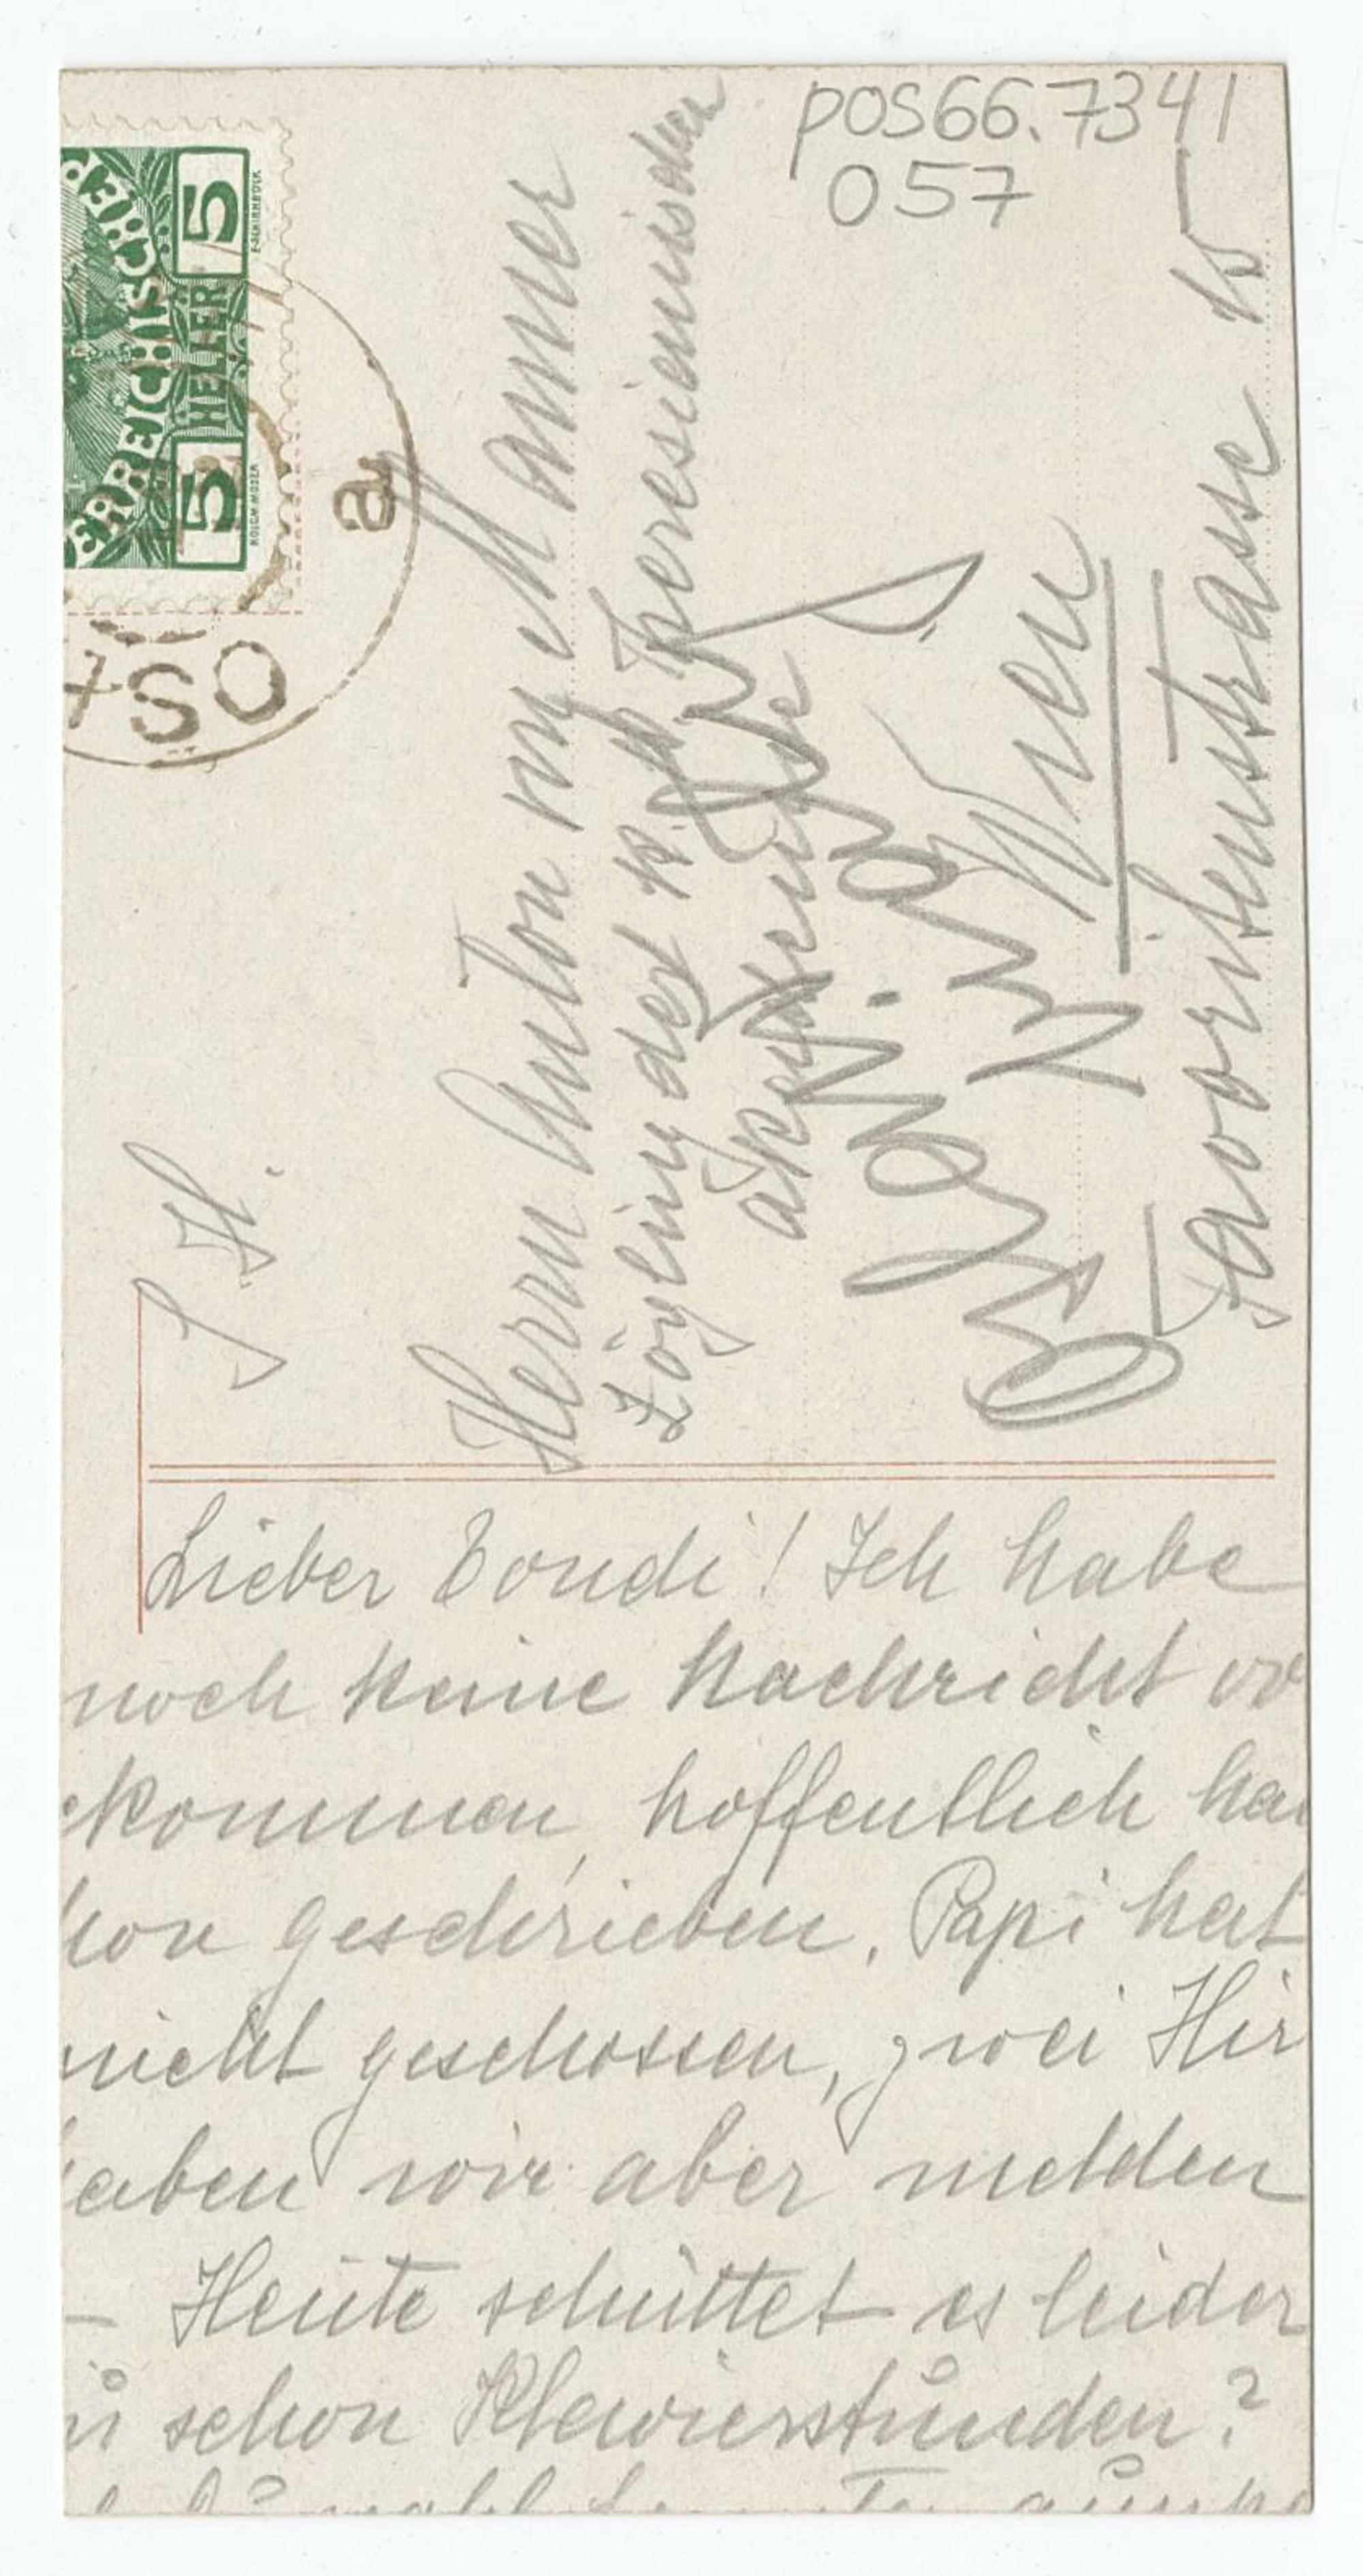 pos66.7341
057
ERREICHISCHE
5 HELLER 5
KOLOM. MOSER
a
OST
S. H.
Herrn Anton v Mauner
Zögling der k. k. Theresianischen
akademie
Wien
Favoritenstrasse 15
Lieber Tondi! Ich habe
noch keine Nachricht vo
ekommen, hoffentlich ha
hon geschrieben. Papi hat
nicht geschossen, zwei Hir
aben wir aber melden
- Heute schüttet es leider
ŭ schon Klavierstŭnden?